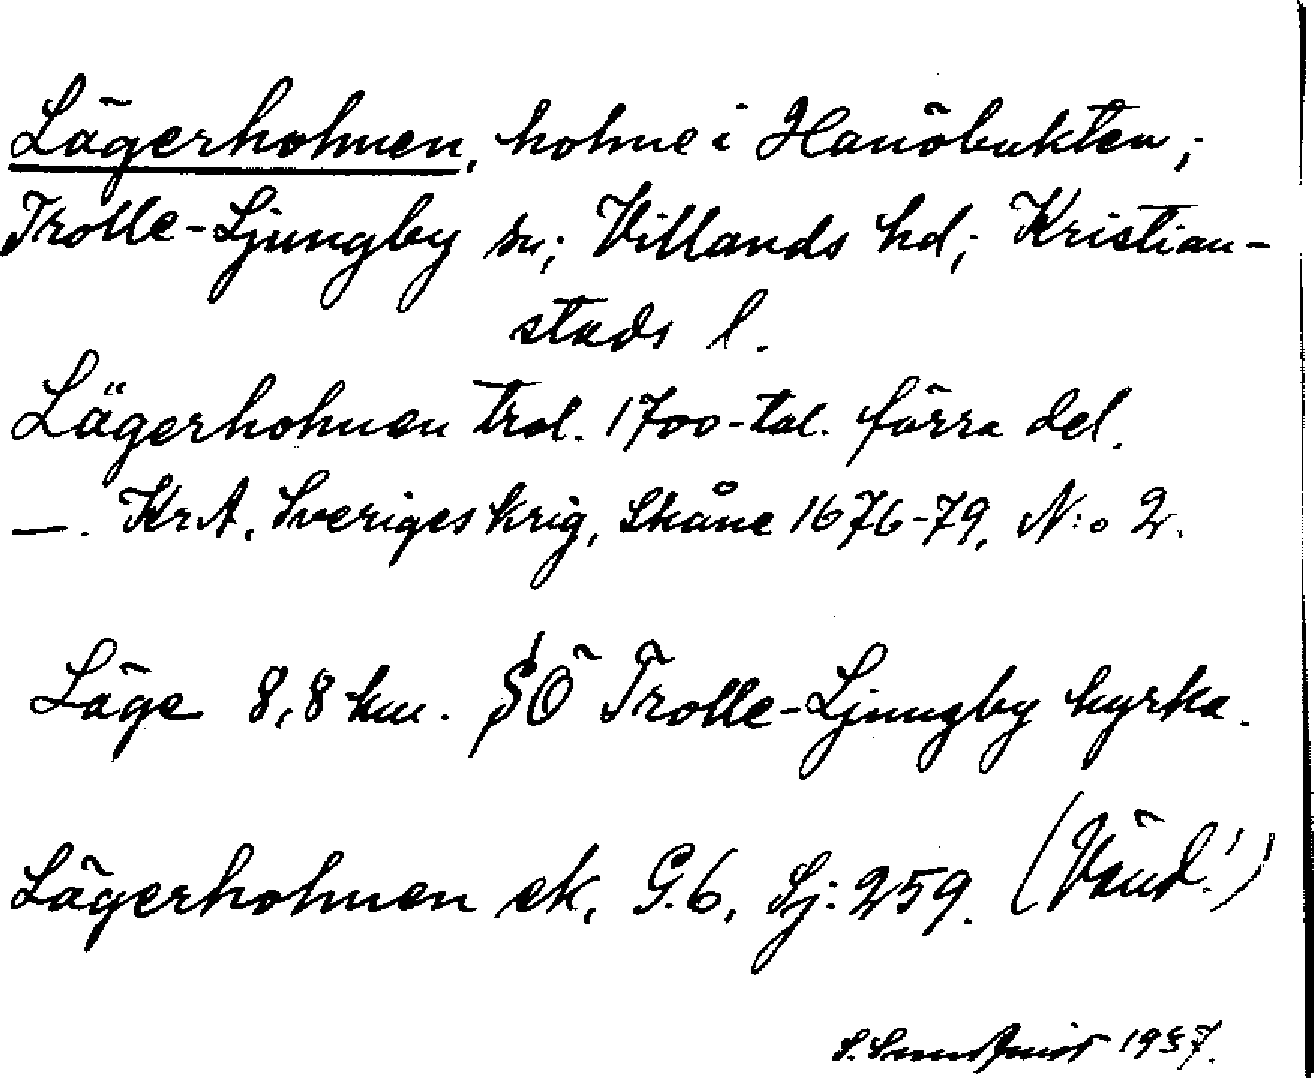 Lägerholmen, holme i Hanöbukten,;
Trolle-Ljungby sn; Villands hd; Kristian-
stads l.
Lägerholmen trol. 1700-tal. förra del.
—. KrA. Sveriges krig, Skåne 1676-79, N:o 2.
Läge 8,8 km. SÖ Trolle-Ljungby kyrka.
Lägerholmen ek. G.6, Lj:259. (Vänd!)
1937.